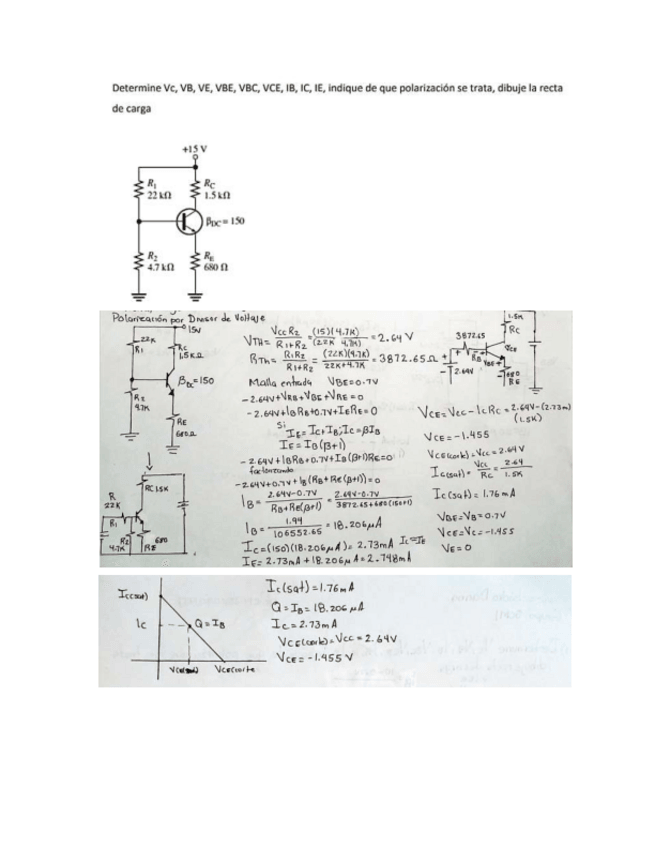 Determine Vc, VB, VE, VBE, VBC, VCE, IB, IC, IE, indique de que polarización se trata, dibuje la recta
de carga
+15 V
R1
22 kΩ
RC
1.5 kΩ
βDC = 150
R2
4.7 kΩ
RE
680 Ω
Polarización por Divisor de Voltaje
15V
22K
R1
RC
1,5KΩ
βDC=150
R2
4.7K
RE
680Ω
VTH = VCC R2 / R1+R2 = (15)(4.7K) / (22K 4.7K) = 2.64 V
RTh = R1R2 / R1+R2 = (22K)(4.7K) / 22K+4.7K = 3872.65Ω
Malla entrada VBE=0.7V
-2.64V+VRB+VBE+VRE=0
-2.64V+IBRB+0.7V+IERE=0
Si
IE=IC+IB; IC=βIB
IE=IB(β+1)
-2.64V+IBRB+0.7V+IB(β+1)RE=0
factorizando
-2.64V+0.7V+IB(RB+RE(β+1))=0
IB = 2.64V-0.7V / RB+RE(β+1) = 2.64V-0.7V / 3872.65+680(150+1)
IB = 1.94 / 106552.65 = 18.206μA
IC=(150)(18.206μA)= 2.73mA IC≈IE
IE= 2.73mA+18.206μA=2.748mA
R
22K
RC 1.5K
R1
R2
4.7K
680
RE
1.5K
RC
3872.65
RB
VCE
VBE
2.64V
680
RE
VCE=VCC-ICRC=2.64V-(2.73m)
(1.5K)
VCE=-1.455
VCE(corte)=VCC=2.64V
IC(sat)= VCC / RC = 2.64 / 1.5K
IC(sat)=1.76mA
VBE=VB=0.7V
VCE=VC=-1.455
VE=0
IC(sat)
IC
Q=IB
VCE(corte)
IC(sat)=1.76mA
Q=IB=18.206μA
IC=2.73mA
VCE(corte)=VCC=2.64V
VCE=-1.455V